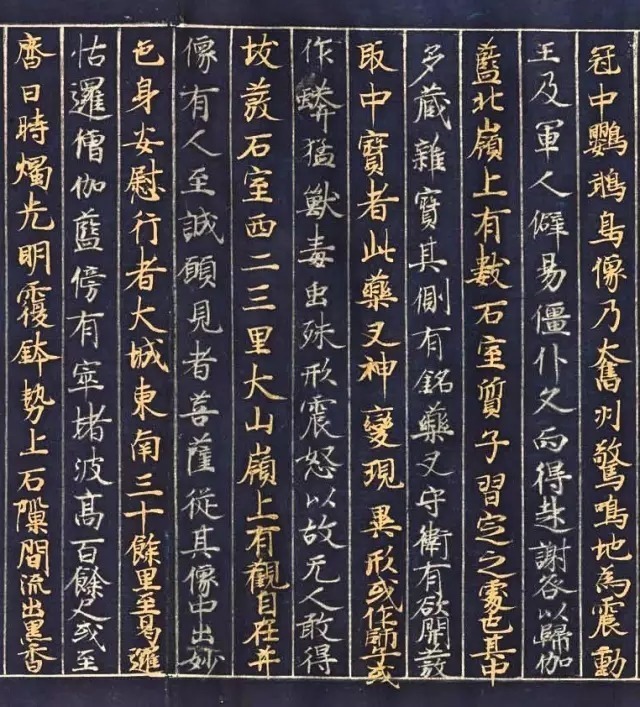 冠中鸚鵡鳥像乃奮羽驚鳴地為震動
王及軍人僻易僵仆久而得起謝咎以歸伽
藍北嶺上有數石室質子習定之處也其中
多藏雜寶其側有銘藥叉守衛有欲開發
取中寶者此藥叉神變現異形或作師子或
作蟒猛獸毒虫殊形震怒以故无人敢得
攻發石室西二三里大山嶺上有觀自在菩
像有人至誠願見者菩薩從其像中出妙
色身安慰行者大城東南三十餘里至曷邏
怙邏僧伽藍傍有窣堵波高百餘尺或至
齋日時燭光明覆鉢勢上石隙間流出黑香